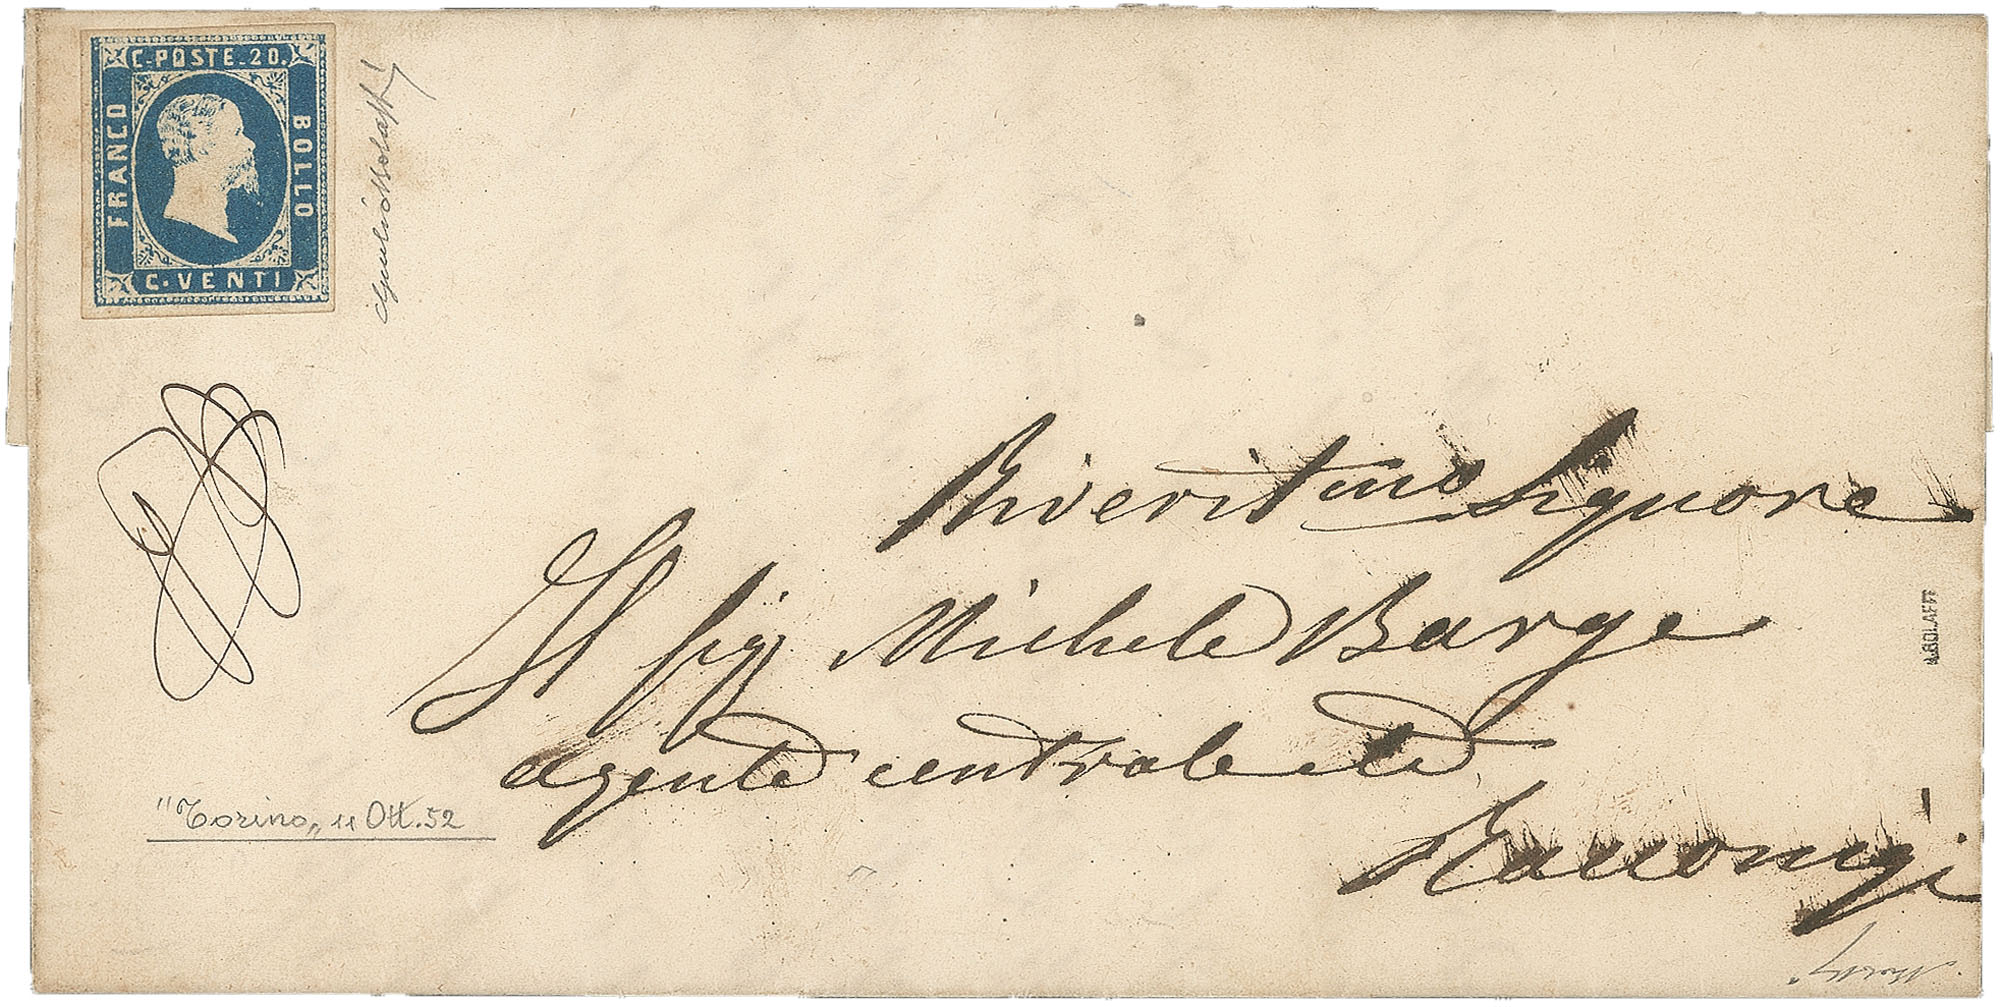 C-POSTE-20.
FRANCO
BOLLO
C·VENTI
Riverit mo Signore
Il Sig Michele Barge
Agente centrale
Racconigi
"Torino„ 11 Ott. 52
A.BOLAFFI